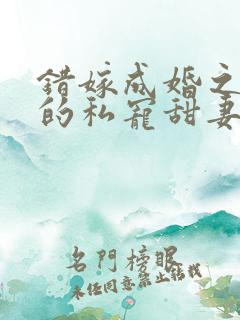 错嫁成婚之
的私宠甜妻
名門榜眼
未任同意禁止转载